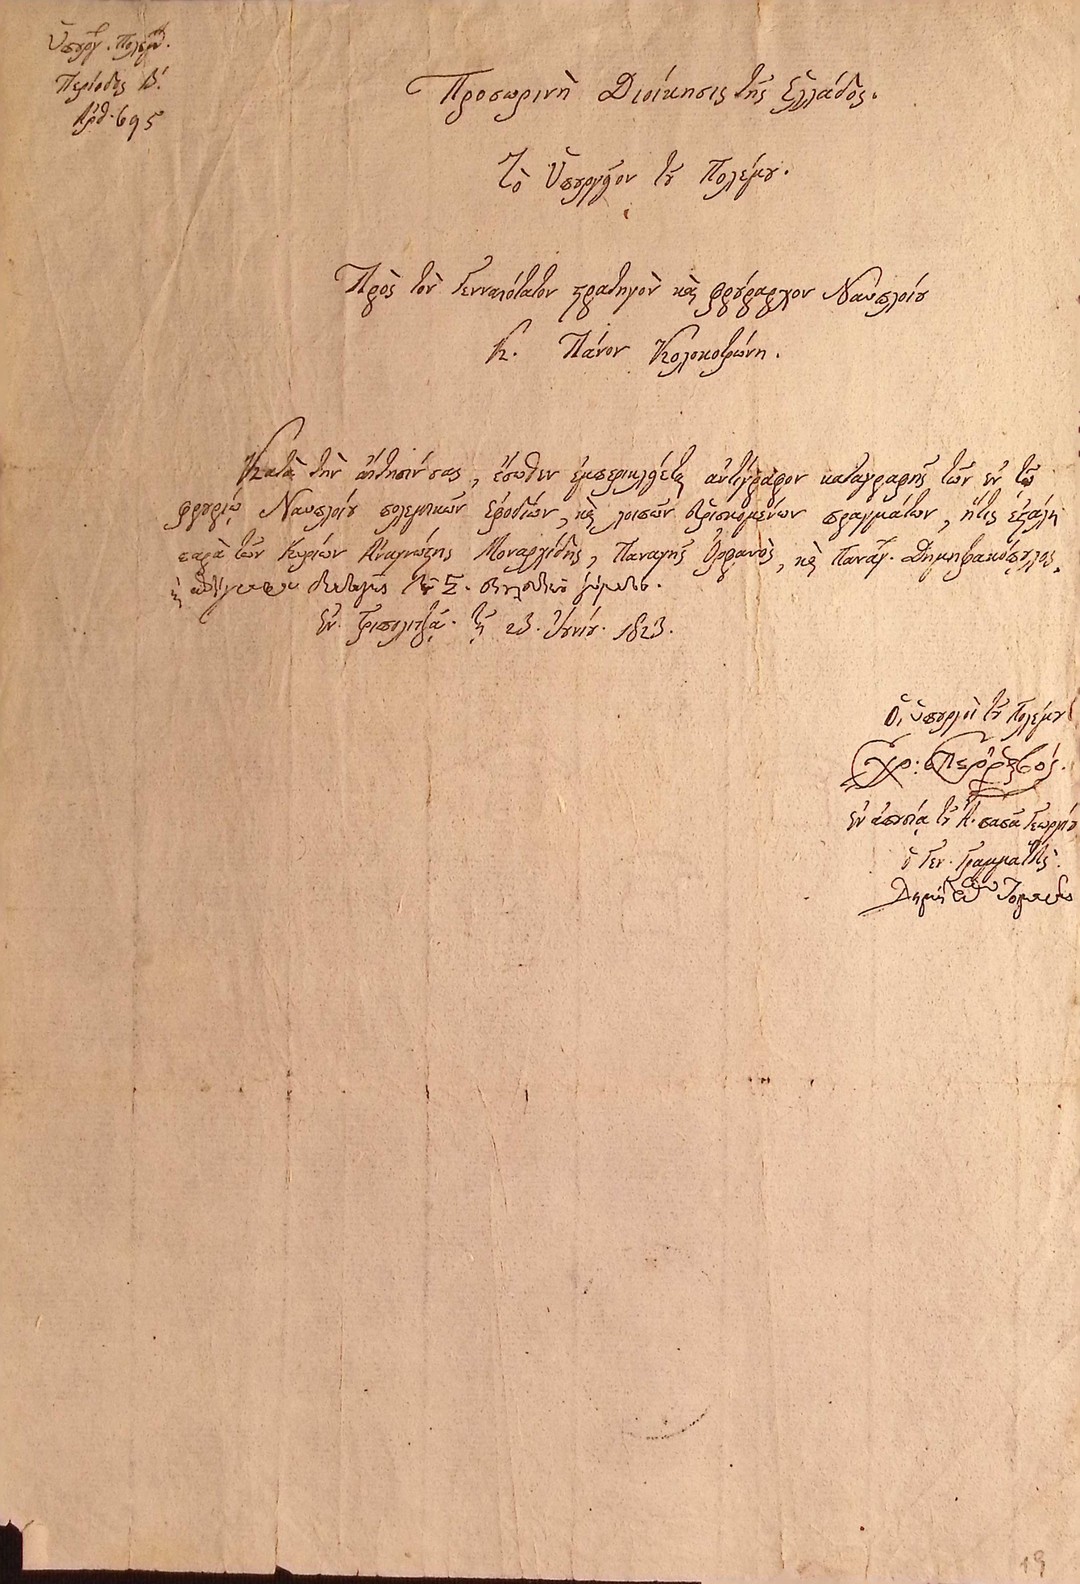 Ὑπουργ. Πολέμ.
Περίοδος Β΄.
Ἀρθ. 695
Προσωρινὴ Διοίκησις τῆς Ἑλλάδος.
Τὸ Ὑπουργεῖον τοῦ Πολέμου.
Πρὸς τὸν Γενναιότατον στρατηγὸν καὶ φρούραρχον Ναυπλοίου
Κ. Πάνον Κολοκοτρώνη.
Κατὰ τὴν αἴτησίν σας, ἔσωθεν ἐμπερικλείεται ἀντίγραφον καταγραφῆς τῶν ἐν τῷ
φρουρίῳ Ναυπλοίου πολεμικῶν ἐφοδίων, καὶ λοιπῶν εὑρισκομένων πραγμάτων, ἥτις ἐξαλη
παρὰ τῶν Κυρίων Ἀναγνώστης Μοναρχίδης, Παναγῆς Ὀρφανὸς, καὶ Παναγ. Δημητρακόπουλος,
Ἐν Τριπολιτζᾷ. τῇ 23. Ἰουνίου. 1823.
Οἱ ὑπουργοὶ τοῦ Πολέμου
Χρ: Περραιβός.
ἐν ἀπουσίᾳ τοῦ Κ. παπᾶ Γεωργίου
ὁ Γεν. Γραμματεὺς.
19